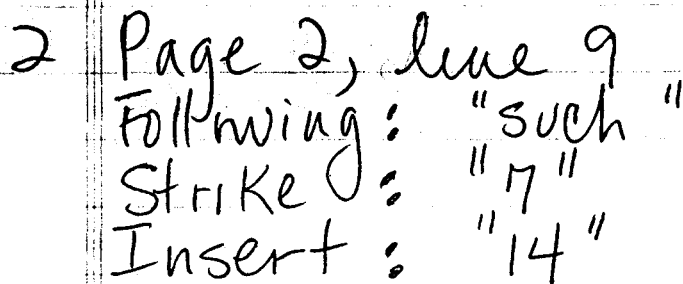 2 Page 2, line 9
Following: "such"
Strike: "7"
Insert: "14"